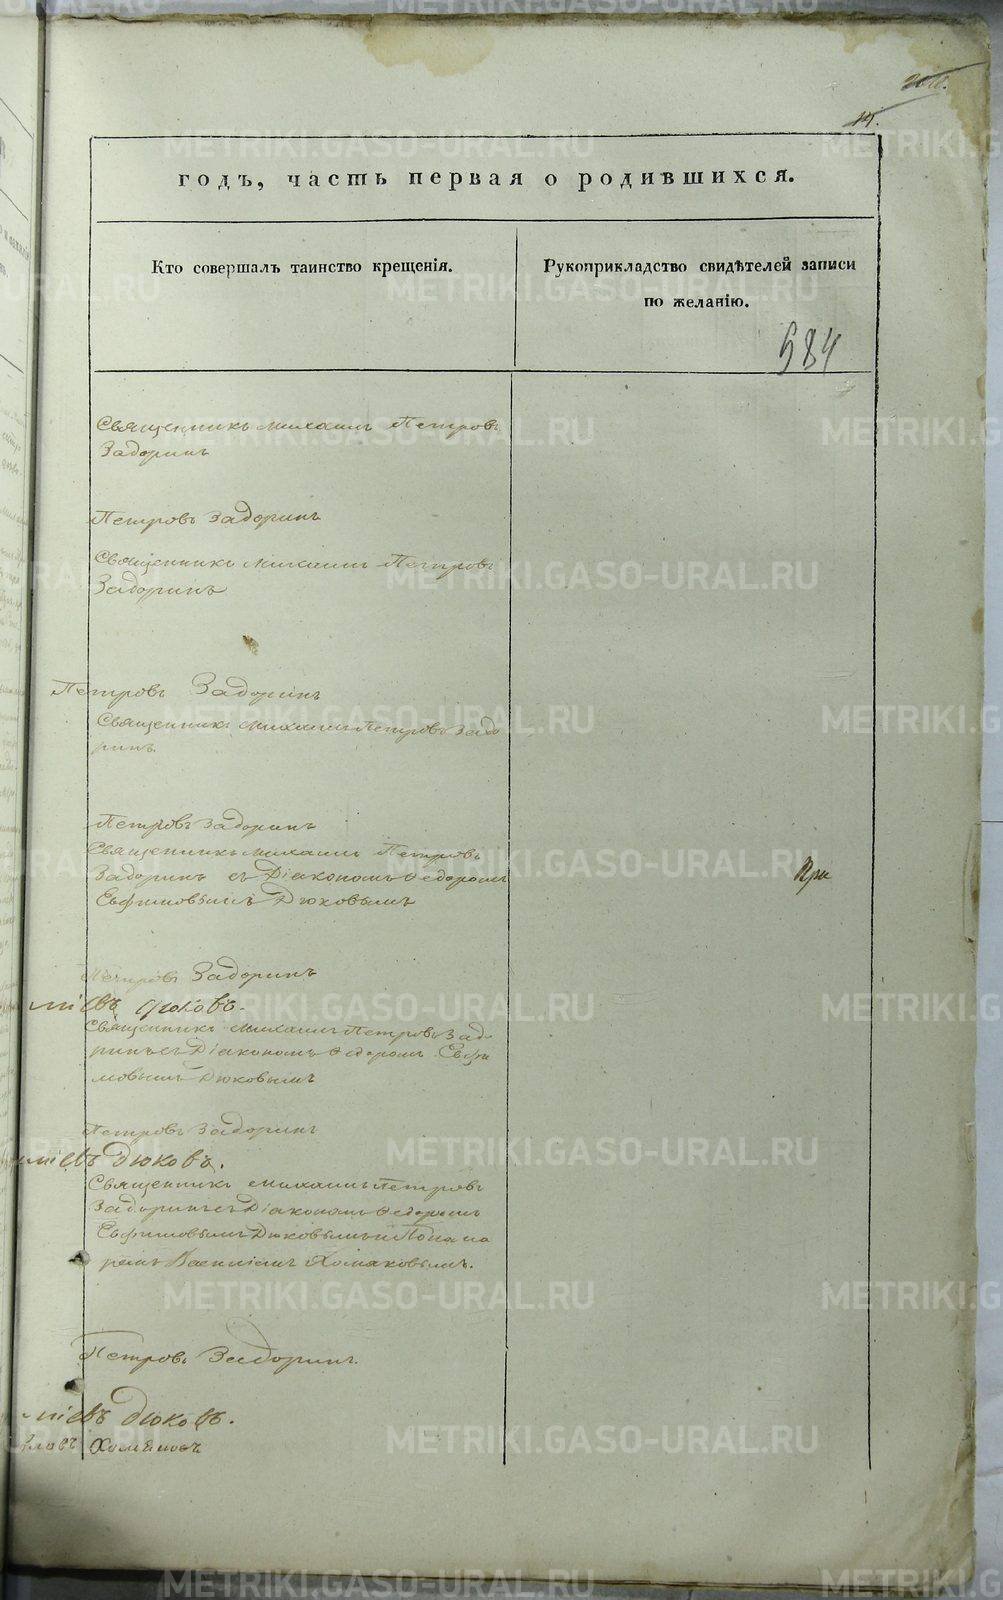 годъ, часть первая о родившихся.
Кто совершалъ таинство крещенія.
Рукоприкладство свидѣтелей записи
по желанію.
584
Священникъ Михаилъ Петровъ
Задоринъ
Петровъ Задоринъ
Священникъ Михаилъ Петровъ
Задоринъ
Петровъ Задоринъ
Священникъ Михаилъ Петровъ Задо
ринъ
Петровъ Задоринъ
Священникъ Михаилъ Петровъ
Задоринъ съ Діакономъ Ѳедоромъ
Евфимовымъ Дюковымъ
При
Петровъ Задоринъ
мíевъ Дюковъ.
Священникъ Михаилъ Петровъ Задо
ринъ съ Діакономъ Ѳедоромъ Евфи
мовымъ Дюковымъ
Петровъ Задоринъ
міевъ Дюковъ.
Священникъ Михаилъ Петровъ
Задоринъ съ Діакономъ Ѳедоромъ
Евфимовымъ Дюковымъ и Понома
ремъ Хомяковымъ.
Петровъ Задоринъ.
міевъ Дюковъ.
Хомяковъ
METRIKI.GASO-URAL.RU